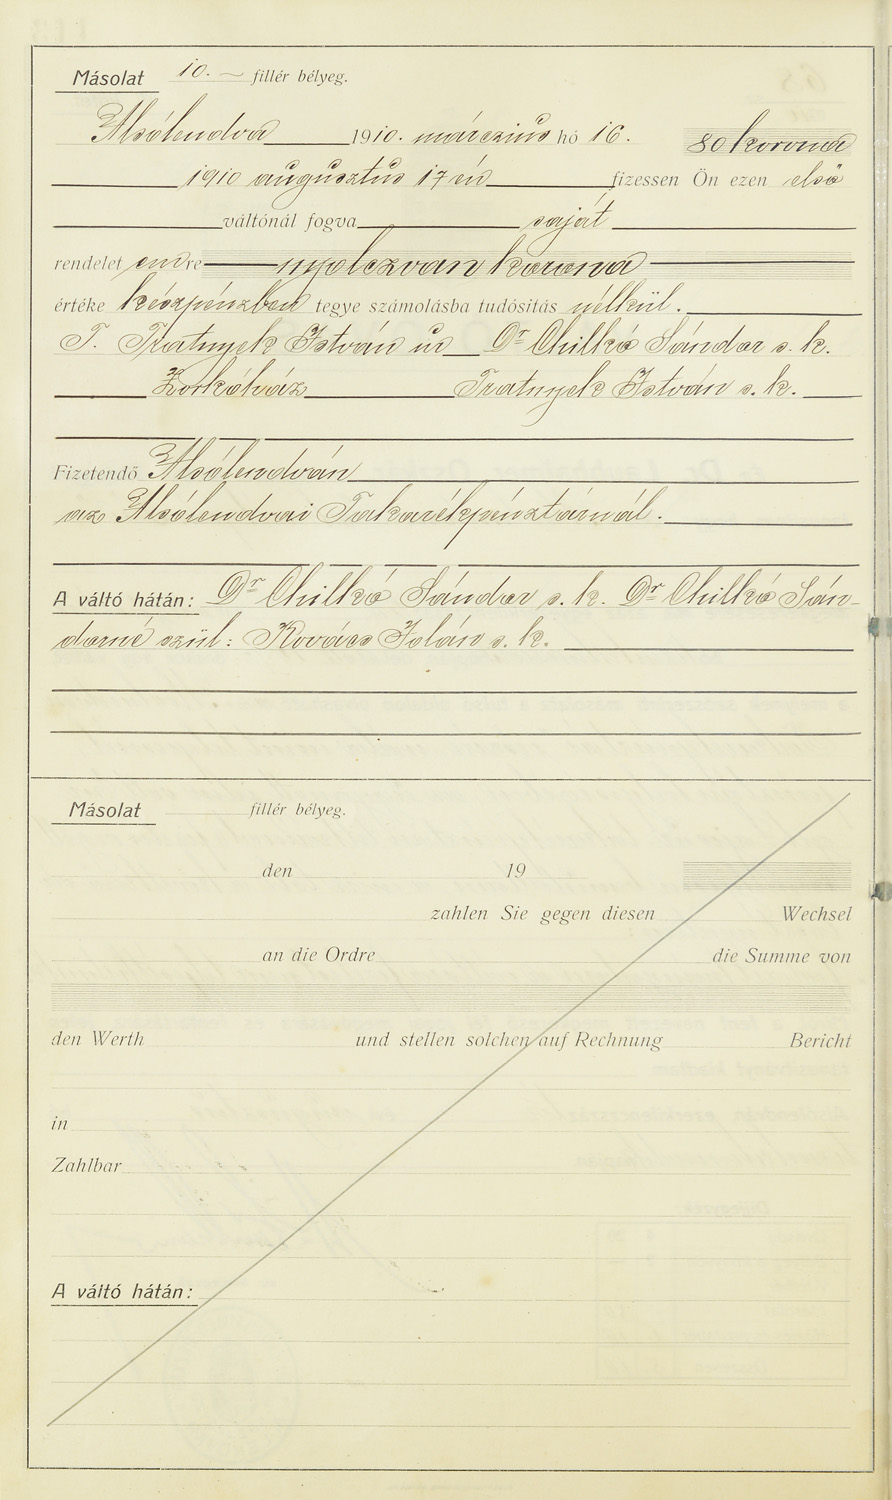 Másolat 10.— fillér bélyeg.
Alsólendva 1910. márczius hó 16. 80 korona
1910 augusztus 17 én fizessen Ön ezen első
váltónál fogva saját
rendelet emre nyolczvan korona
értéke készpénzben tegye számolásba tudósítás nélkül.
T. Tratnyek István úr Dr Chilkó Sándor s. k.
Zorkóház Tratnyek István s. k.
Fizetendő Alsólendván
az Alsólendvai Takarékpénztárnál.
A váltó hátán: Dr Chilkó Sándor s. k. Dr Chilkó Sán-
dorné szül: Kovács Jolán s. k.
Másolat fillér bélyeg.
den 19
zahlen Sie gegen diesen Wechsel
an die Ordre die Summe von
den Werth und stellen solchen auf Rechnung Bericht
in
Zahlbar
A váltó hátán: